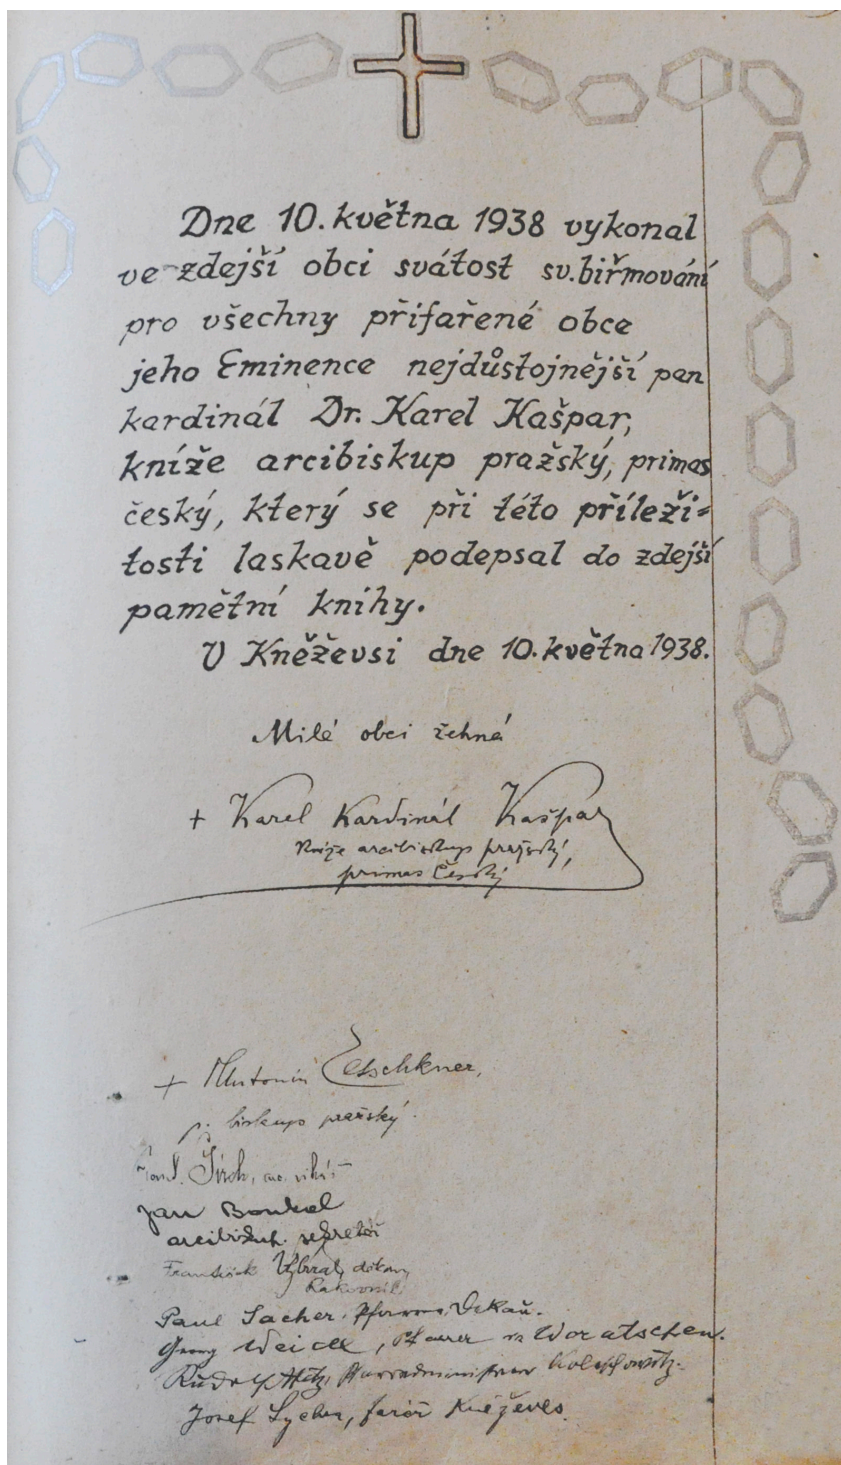 Dne 10. května 1938 vykonal
ve zdejší obci svátost sv. biřmování
pro všechny přifařené obce
jeho Eminence nejdůstojnější pan
kardinál Dr. Karel Kašpar,
kníže arcibiskup pražský, primas
český, který se při této příleži=
tosti laskavě podepsal do zdejší
pamětní knihy.
V Kněževsi dne 10. května 1938.
Milé obci žehná
+ Karel Kardinál Kašpar
kníže arcibiskup pražský,
primas Český
+ Antonín Eltschkner,
biskup pražský
Jan Boukal
arcibiskup. sekretář
František Vybíral, děkan,
Rakovník
Paul Sacher, Dekan.
Georg Weidl, Pfarrer in Woratschen.
Rudolf Koleschowitz.
Josef farář Kněževes.